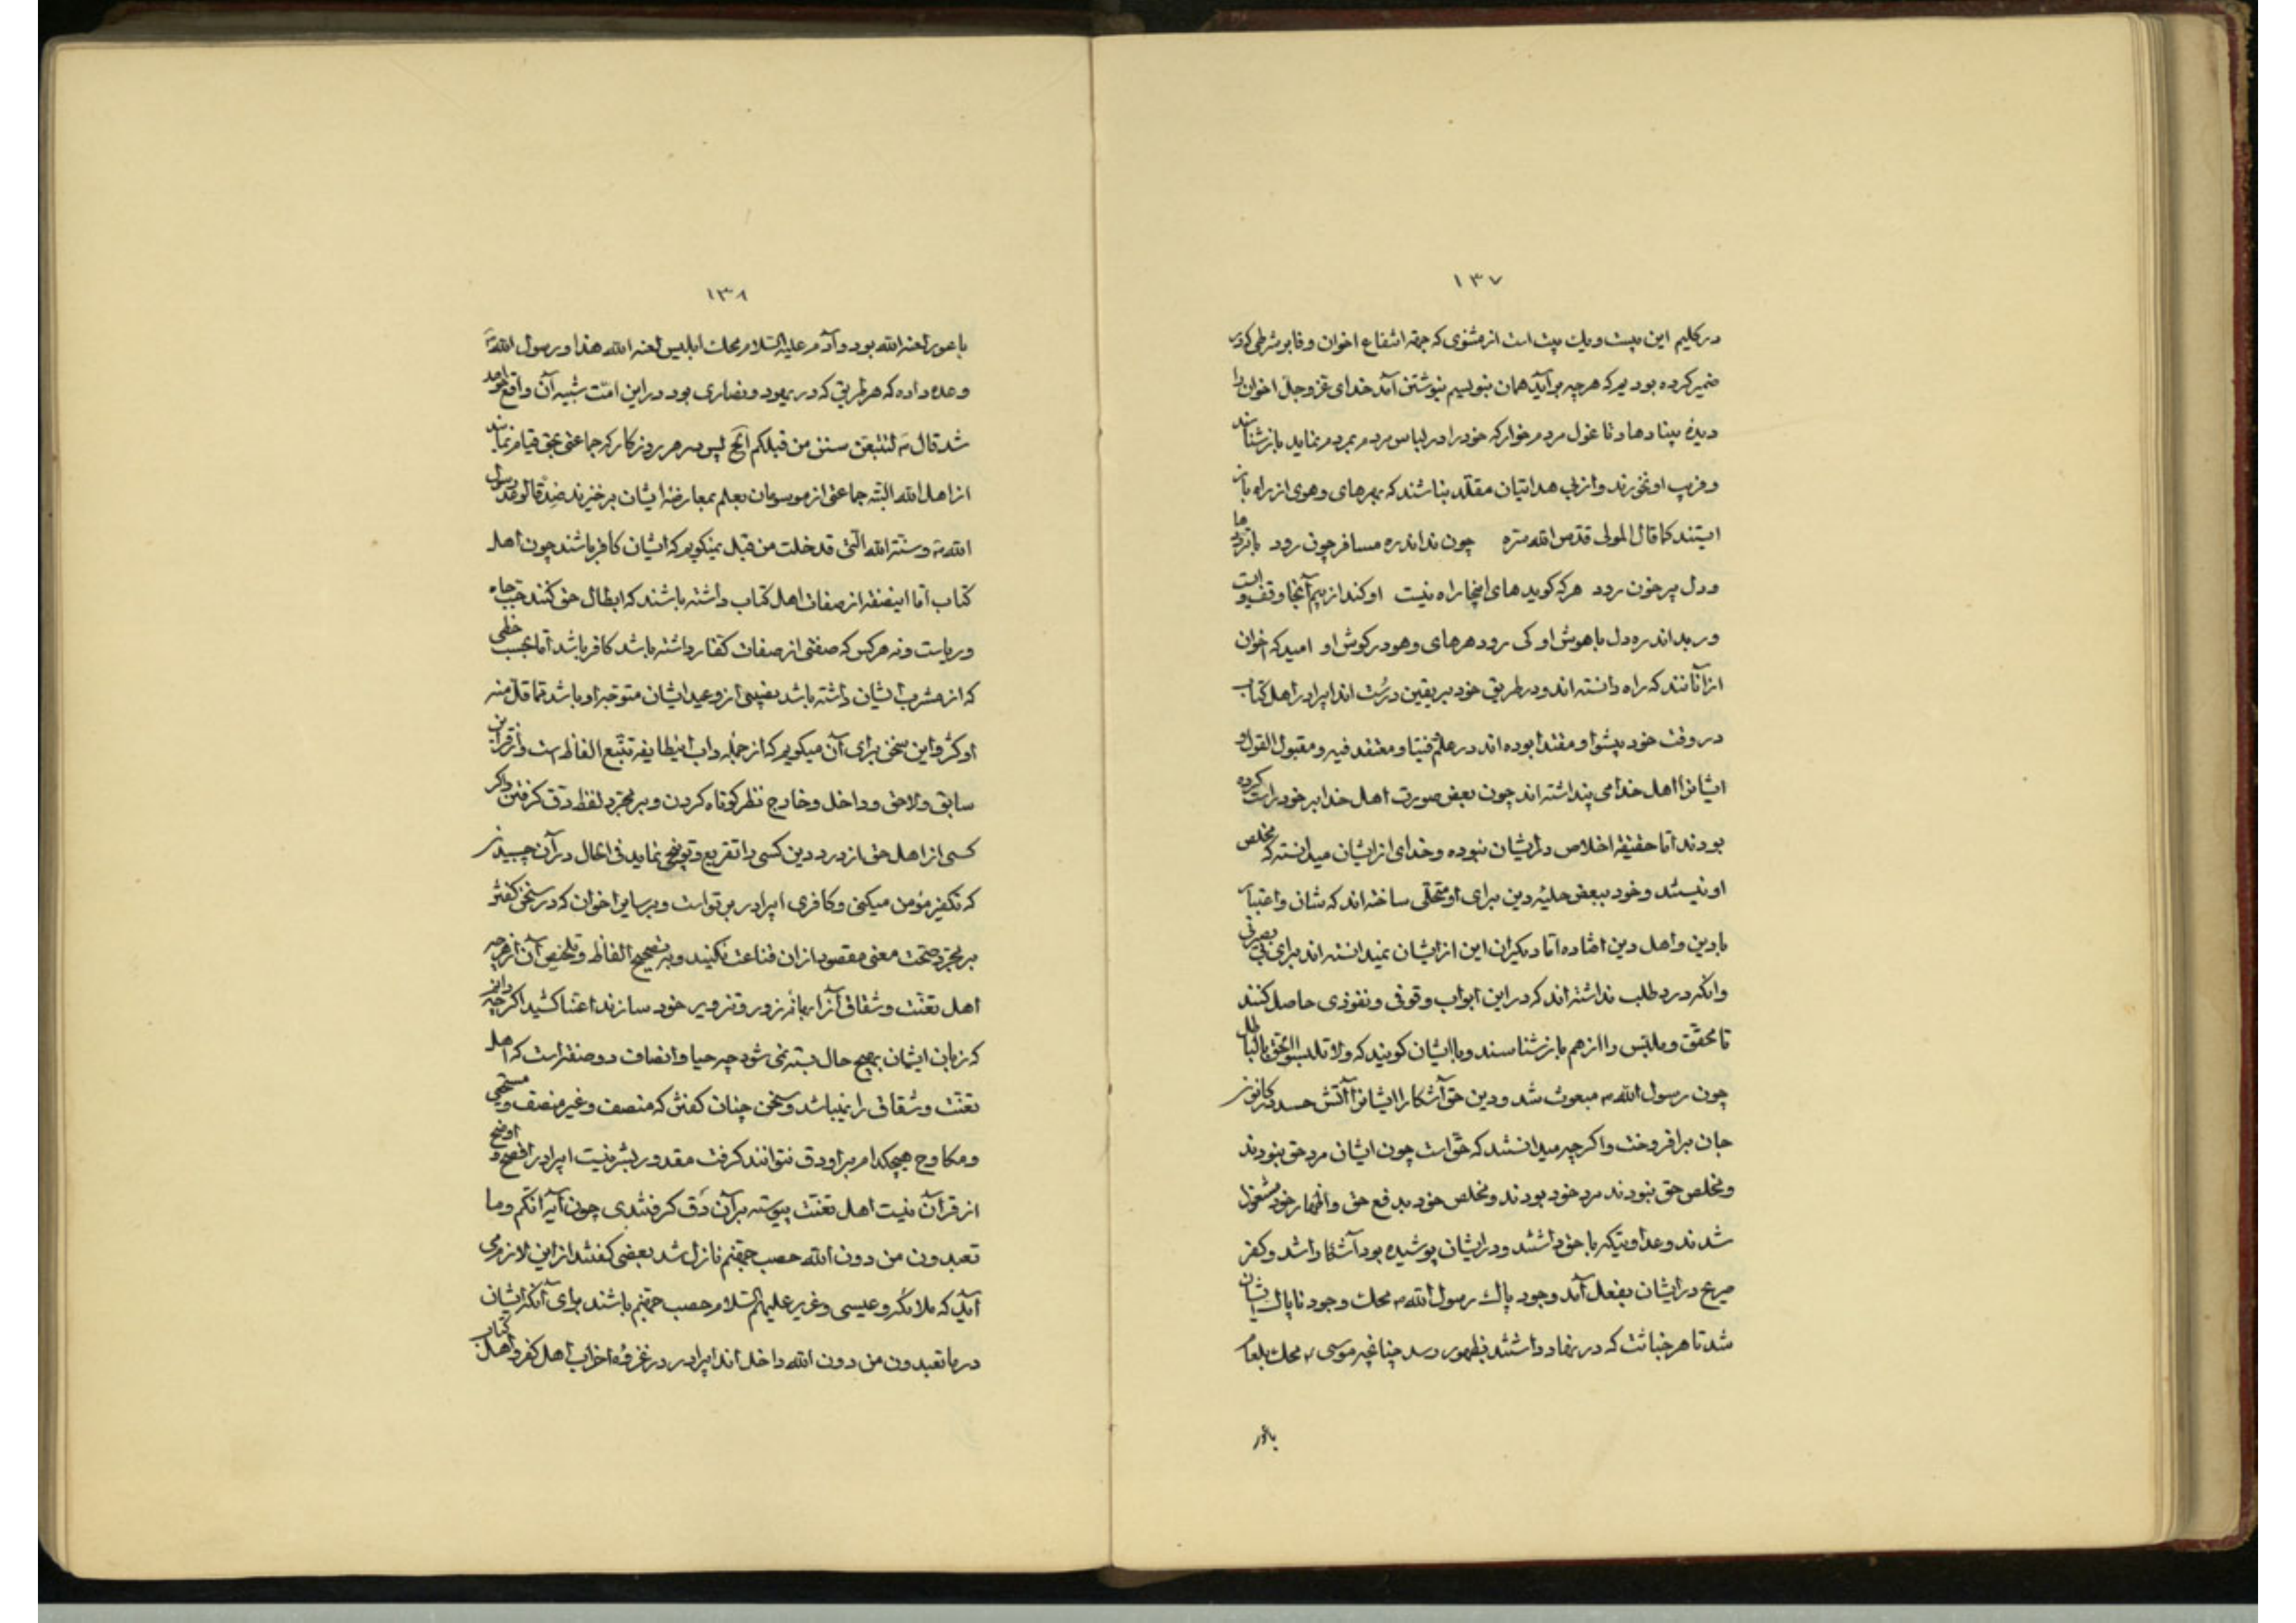 ١٣٧
در كليم اين بيست و يك بيت است از مثنوى كه جهة انتفاع اخوان وفا بشرطى كه در
ضمير كرده بوديم كه هرچه برآيد همان بنويسيم نبوشتن آمد خداى عز وجل اخوان را
ديدهٔ بينا دهاد تا غول مردم خوار كه خود را در لباس مردم بمردم نمايد باز شناسند
و فريب او نخورند و از بى هدايتان مقلد نباشند كه بهرهاى وهوى از راه باز
ايستند كما قال المولى قدس الله سره چون نداند ره مسافر چون رود با ترددها
و دل پر خون رود هر كه گويد هاى اينجا راه نيست او كند از بيم آنجا وقف و ايست
ور بداند ره دل باهوش او كى رود هر هاى وهو در گوش او اميد كه اخوان
از آنانند كه راه دانسته اند و در طريق خود بر يقين درست اند ايرادر اهل كتاب
در وقت خود پيشوا و مقتدا بوده اند در علم فتيا و معتقد فيه و مقبول القول و
ايشانرا اهل خدا مى پنداشته اند چون بعض صورت اهل خدا بر خود راست كرده
بودند اما حقيقة اخلاص در ايشان نبوده و خداى از ايشان ميدانسته كه مخلص
او نيستند و خود ببعض حليه دين براى او متحلى ساخته اند كه شان و اعتبار
با دين و اهل دين افتاده اما ديگران اين از ايشان نميدانسته اند براى بى بصرتى
وانكه درد طلب نداشته اند كه در اين ابواب وقوفى و نفوذى حاصل كنند
تا محقق و ملبس را از هم باز شناسند و با ايشان گويند كه ولا تلبسوا الحق بالباطل
چون رسول الله ص مبعوث شد و دين حق آشكارا ايشانرا آتش حسد در كانون
جان برافروخت و اگرچه ميدانستند كه حق است چون ايشان مرد حق نبودند
و مخلص حق نبودند مرد خود بودند و مخلص خود بدفع حق و اظهار خود مشغول
شدند و عداوتيكه با حق داشتند و در ايشان پوشيده بود آشكارا شد و كفر
صريح در ايشان بفعل آمد وجود پاك رسول الله ص محك وجود ناپاك ايشان
شد تا هر خباثت كه در نهاد داشتند بظهور رسد چنانچه موسى ع محك بلعام
باعور
١٣٨
باعور لعنه الله بود و آدم عليه السلام محك ابليس لعنه الله هذا و رسول الله ص
وعده داده كه هر طريق كه در يهود و نصارى بود در اين امت شبيه آن واقع خواهد
شد قال ص لتتبعن سنن من قبلكم الخ پس در هر روزگار كه جماعتى بحق قيام نمايند
از اهل الله البته جماعتى از موسومان بعلم بمعارضه ايشان برخيزند ضد قالو عد رسول
الله ص و سنة الله التى قد خلت من قبل نميگويم كه ايشان كافر باشند چون اهل
كتاب اما اينصفة از صفات اهل كتاب داشته باشند كه ابطال حق كنند بحب جاه
و رياست و نه هر كس كه صفتى از صفات كفار داشته باشد كافر باشد اما بحسب خطى
كه از مشرب ايشان داشته باشد نصيبى از وعيد ايشان متوجه او باشد مما قل منه
او كثر و اين سخن براى آن ميگويم كه از جمله داب اينطايفه تتبع الفاظ است و از قراين
سابق و لاحق و داخل و خارج نظر كوتاه كردن و بر مجرد لفظ دق گرفتن و اگر
كسى از اهل حق از درد دين كسى را تقريع و توبيخ نمايد فى الحال در آن چسبيدن
كه تكفير مؤمن ميكنى و كافرى ايرادر بر تو است و بر ساير اخوان كه در سخن گفتن
بر مجرد صحت معنى مقصود از آن قناعت نكنيد و به تصحيح الفاظ و تلخيص آن از هرچه
اهل تعنت و شقاق آنرا بهانه زور و تزوير خود سازند اعتنا كشيد اگرچه دانم
كه زبان ايشان بهيچ حال بسته نمى شود چه حيا و انصاف دو صفتست كه اهل
تعنت و شقاق را نميباشد و سخن چنان گفتن كه منصف و غير منصف و مستحيى
و مكاوح هيچكدام بر او دق نتوانند گرفت مقدور بشر نيست ايرادر افصح و اوضح
از قرآن نيست اهل تعنت پيوسته بر آن دق گرفتندى چون آيه انكم وما
تعبدون من دون الله حصب جهنم نازل شد بعضى گفتند از اين لازم مى
آيد كه ملائكه و عيسى و عزير عليهم السلام حصب جهنم باشند براى آنكه ايشان
در ما تعبدون من دون الله داخل اند ايرادر در غزوهٔ احزاب اهل كفر و اهل كتاب